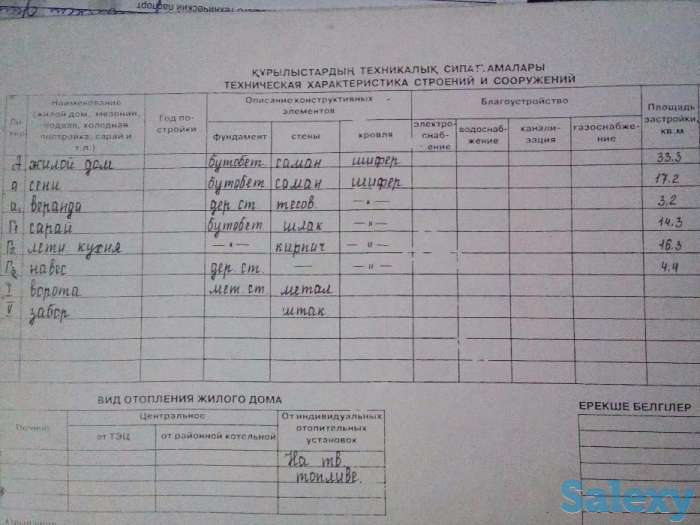 технический паспорт
ҚҰРЫЛЫСТАРДЫҢ ТЕХНИКАЛЫҚ СИПАТТАМАЛАРЫ
ТЕХНИЧЕСКАЯ ХАРАКТЕРИСТИКА СТРОЕНИЙ И СООРУЖЕНИЙ
Наименование (жилой дом, мезонин, подвал, холодная пристройка, сарай и т.п.) Год постройки Описание конструктивных элементов Благоустройство Площадь застройки, кв.м
фундамент стены кровля электроснабжение водоснабжение канализация газоснабжение
А жилой дом бутобет саман шифер 33.3
а сени бутобет саман шифер 17.2
а₁ веранда дер. ст тесов. —"— 3,2
Г₁ сарай бутобет шлак —"— 14.3
Г₂ летн. кухня —"— кирпич —"— 16.3
Г₃ навес дер. ст. — —"— 4.4
I ворота мет. ст метал
II забор штак
ВИД ОТОПЛЕНИЯ ЖИЛОГО ДОМА
ЕРЕКШЕ БЕЛГІЛЕР
Печное Центральное От индивидуальных отопительных установок
от ТЭЦ от районной котельной
На тв
топливе.
Salexy